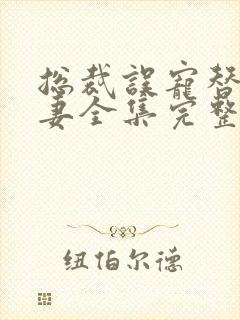 总裁误宠替
妻全集完整
纽伯尔德